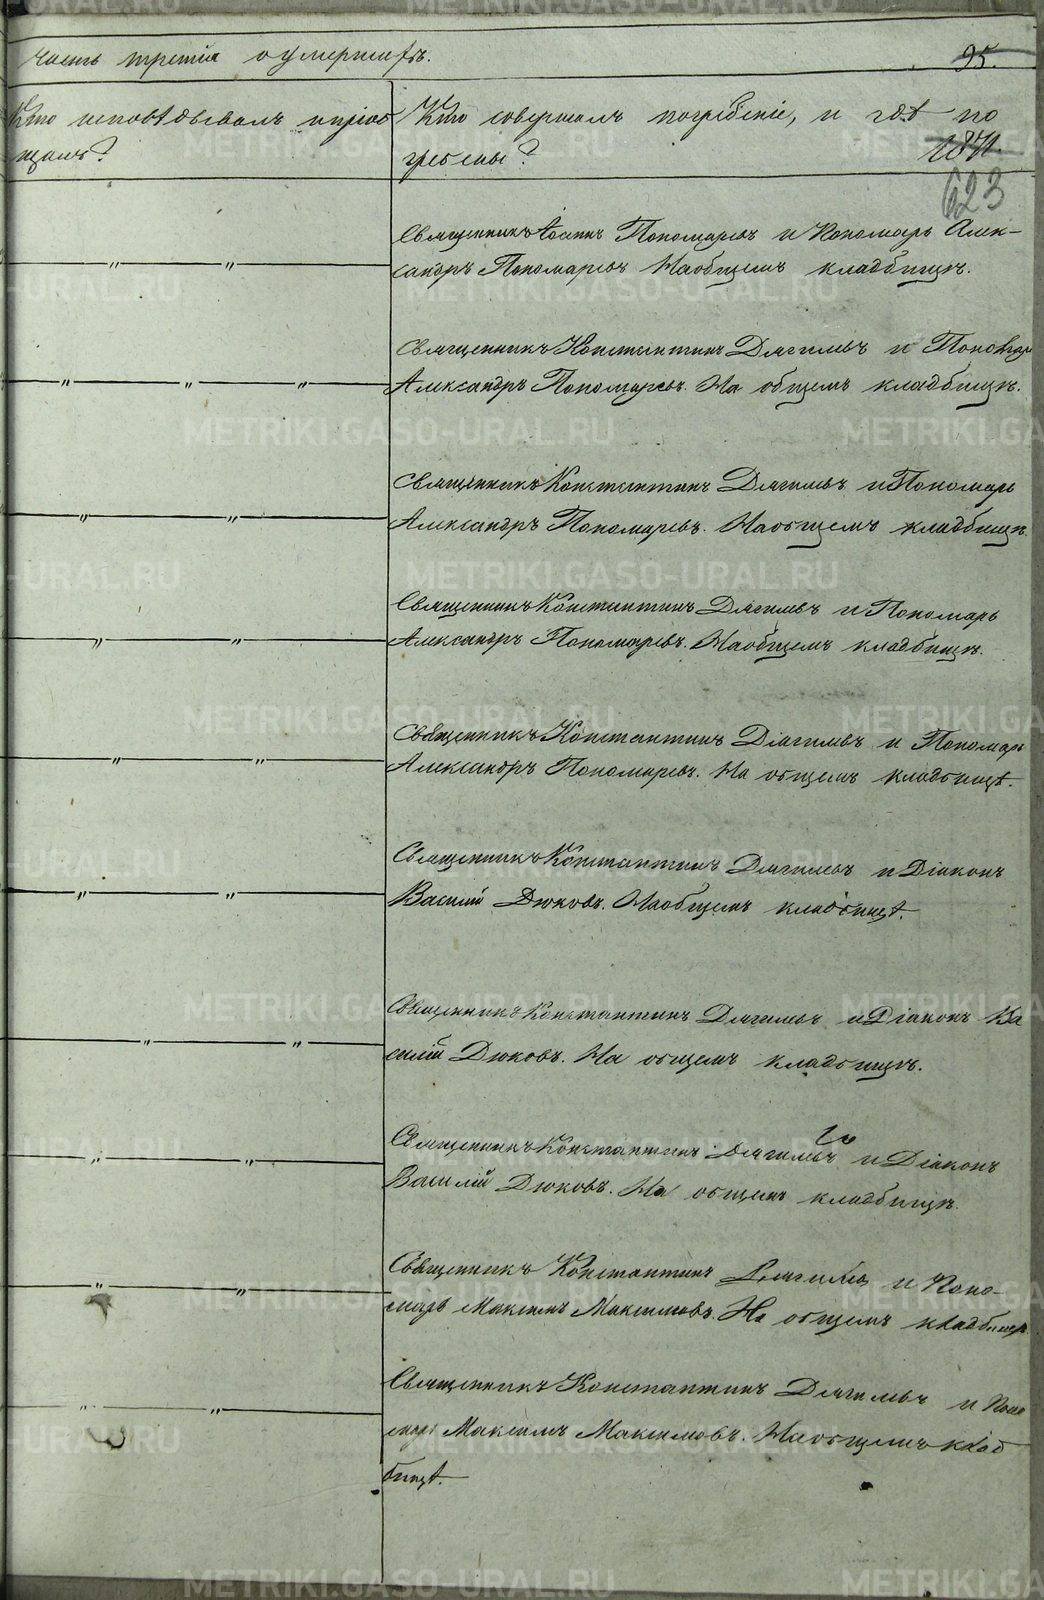 часть третія о умершихъ.
95.
Кто исповѣдывалъ и пріоб
щалъ?
Кто совершалъ погребеніе, и гдѣ по
гребены?
1871.
623
Священникъ Іоаннъ Пономаревъ и Пономарь Алек-
сандръ Пономаревъ. На общемъ кладбищѣ.
Священникъ Константинъ Дягилевъ и Пономарь
Александръ Пономаревъ. На общемъ кладбищѣ.
Священникъ Константинъ Дягилевъ и Пономарь
Александръ Пономаревъ. На общемъ кладбищѣ.
Священникъ Константинъ Дягилевъ и Пономарь
Александръ Пономаревъ. На общемъ кладбищѣ.
Священникъ Константинъ Діагилевъ и Пономарь
Александръ Пономаревъ. На общемъ кладбищѣ.
Священникъ Константинъ Дягилевъ и Діаконъ
Василій Дюковъ. На общемъ кладбищѣ.
Священникъ Константинъ Дягилевъ и Діаконъ Ва
силій Дюковъ. На общемъ кладбищѣ.
Священникъ Константинъ Дягилевъ и Діаконъ
Василій Дюковъ. На общемъ кладбищѣ.
Священникъ Константинъ Дягилевъ и Поно-
марь Максимъ Максимовъ. На общемъ кладбищѣ
Священникъ Константинъ Дягилевъ и Поно
марь Максимъ Максимовъ. На общемъ клад
бищѣ.
METRIKI.GASO-URAL.RU